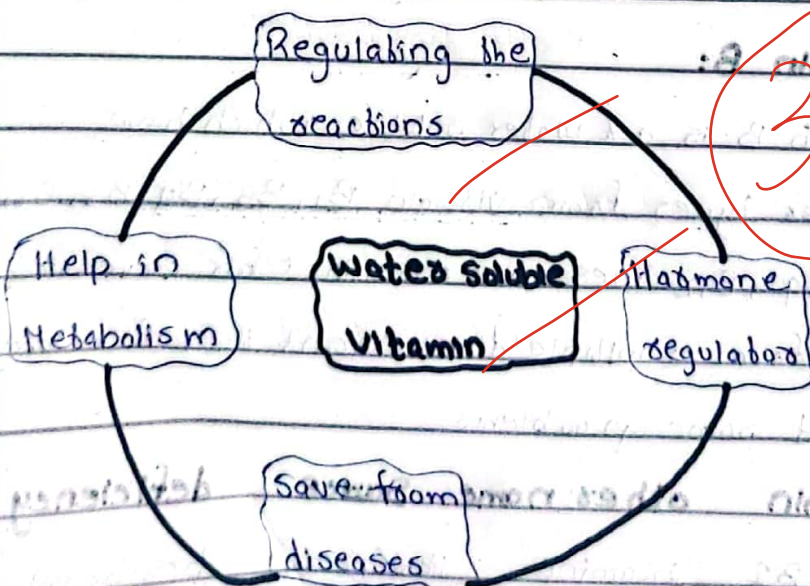 Regulating the
reactions
Help in
Metabolism
Water soluble
Vitamin
Harmone
regulator
Save from
diseases
3